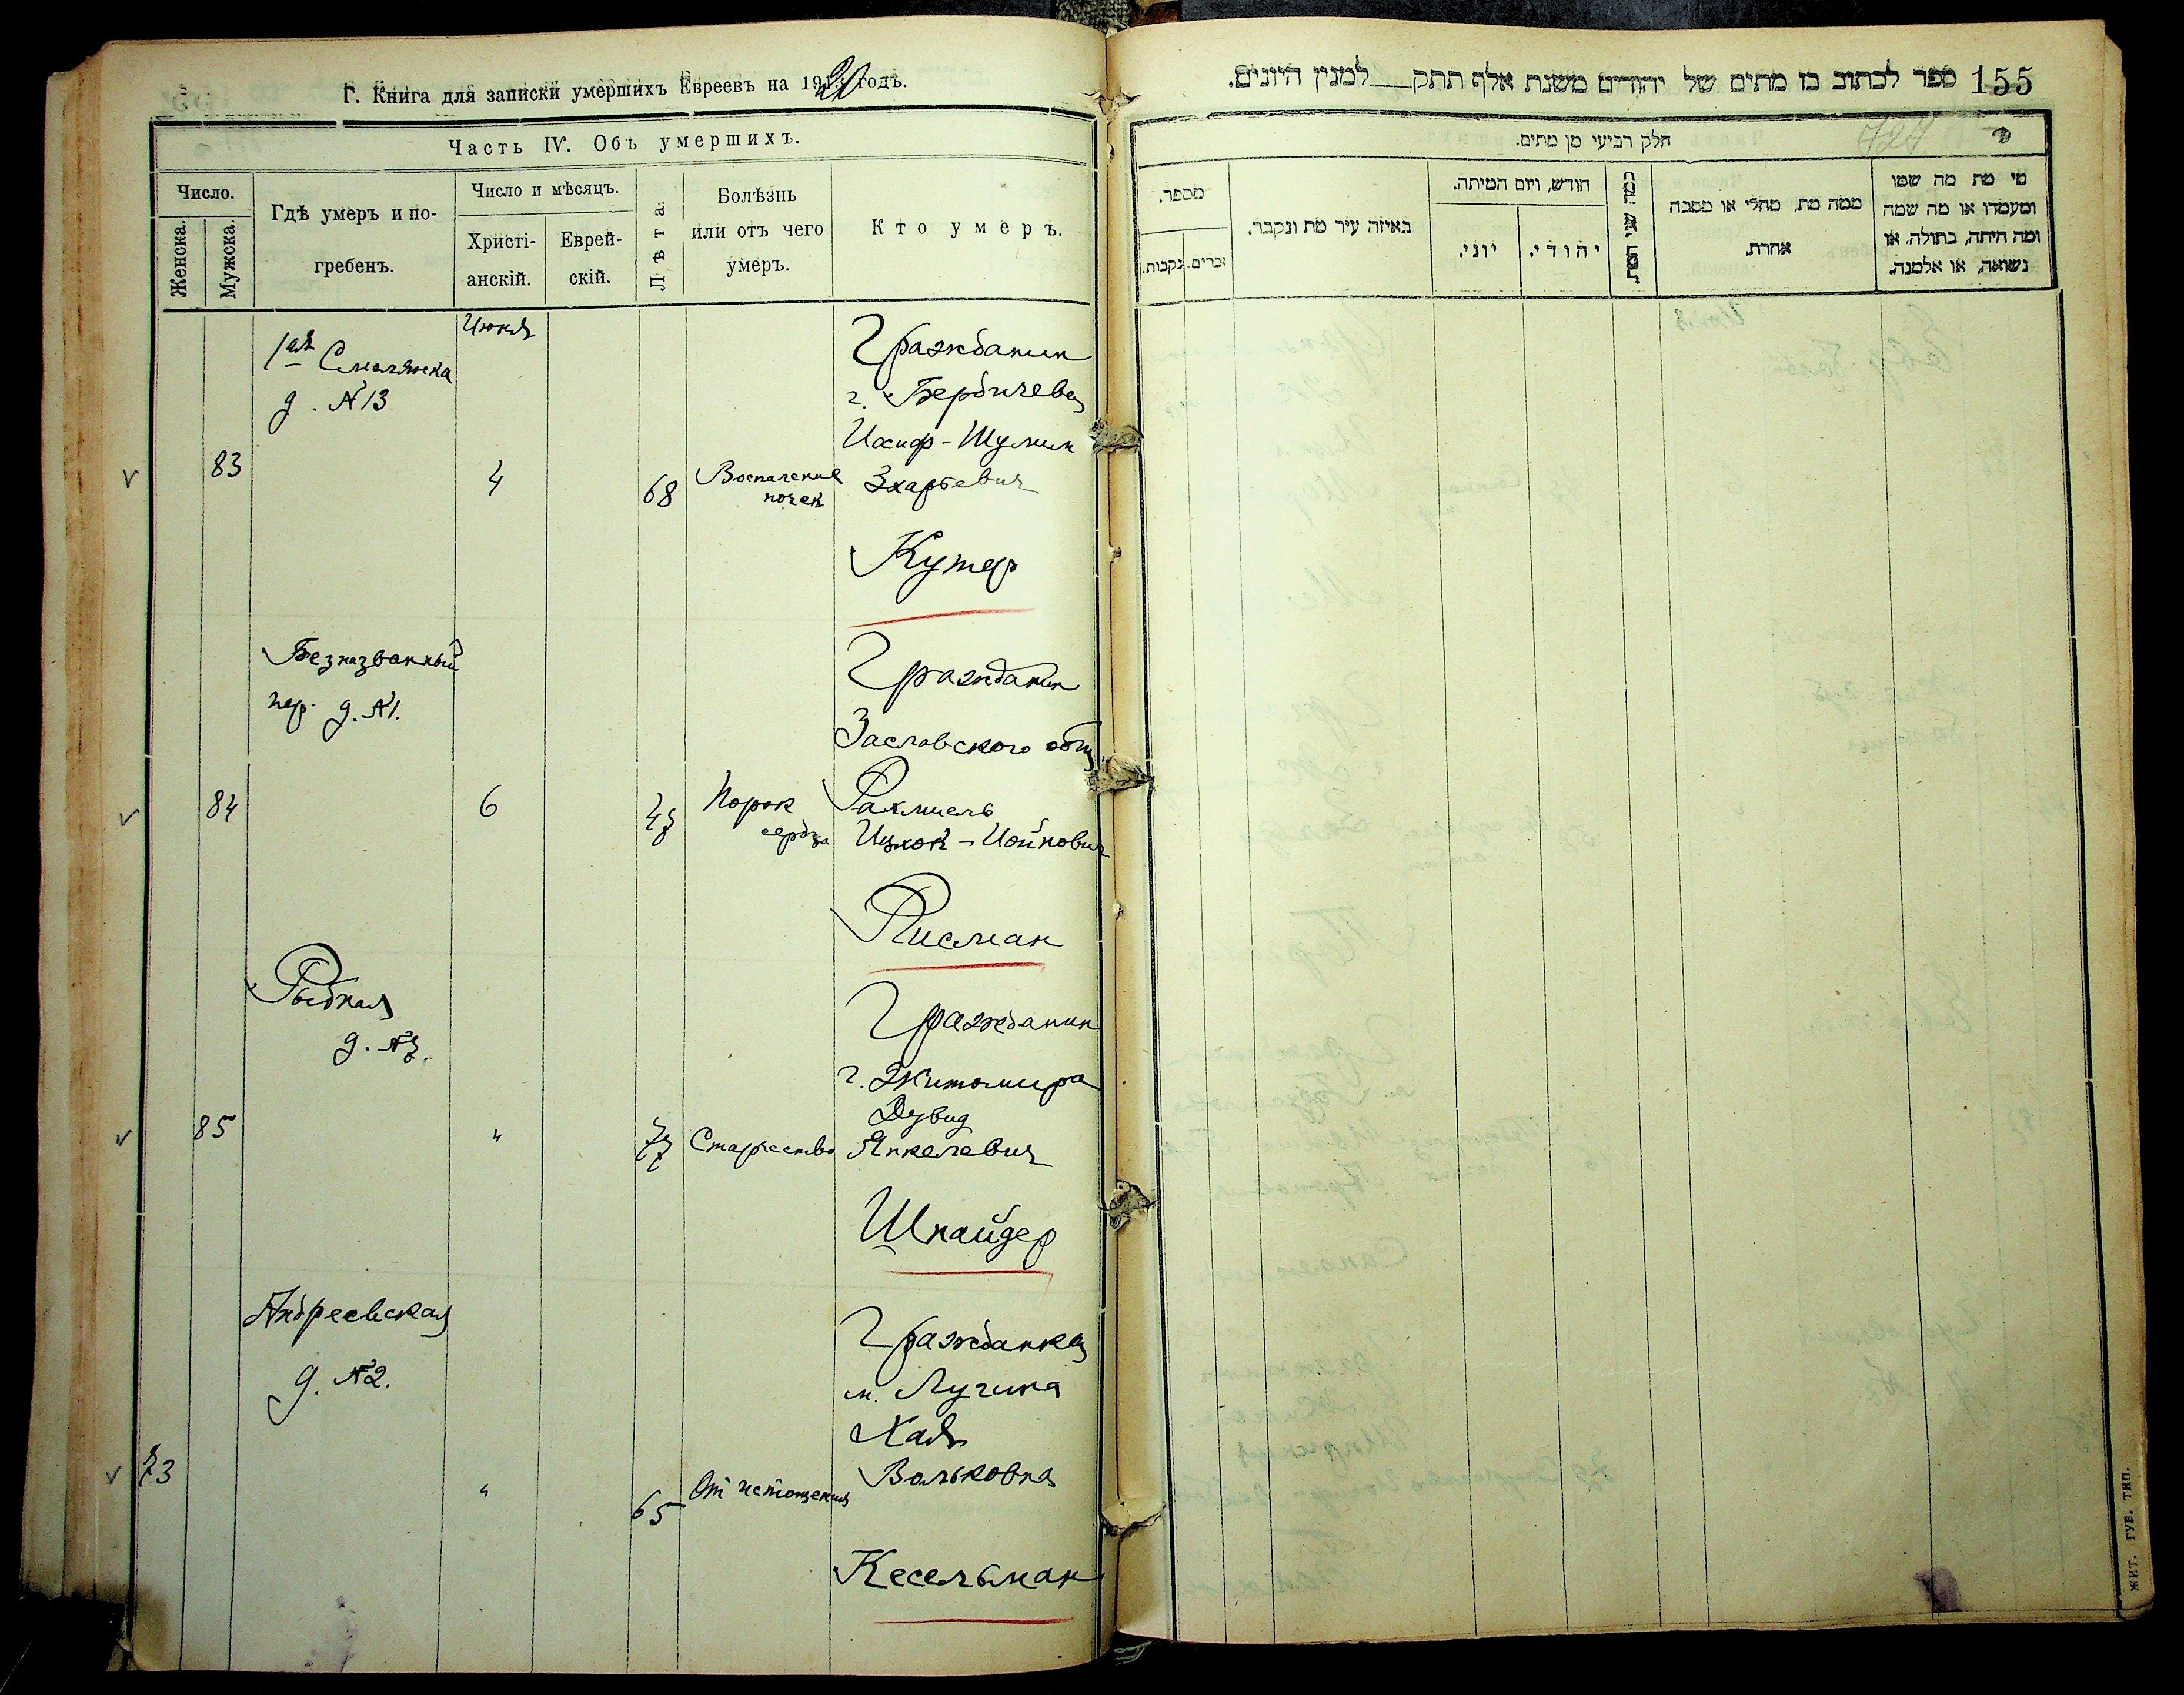 Г. Книга для записки умершихъ Евреевъ на 1920 годъ.
Часть IV. Объ умершихъ.
Число.
Женска.
Мужска.
Гдѣ умеръ и по-
гребенъ.
Число и мѣсяцъ.
Христі-
анскій.
Еврей-
скій.
Лѣта.
Болѣзнь
или отъ чего
умеръ.
Кто умеръ.
Июня
1ая Смолянка
д. №13
83
4
68
Воспаление
почек
Гражданин
г. Бердичева
Иосиф-Шулим
Зхарьевич
Кутер
Безназванный
пер. д. №1.
84
6
47
Порок
сердца
Гражданин
Заславского общ
Рахмиель
Ицхок-Иойнович
Рисман
Рыбная
д. №7.
85
"
77
Старчество
Гражданин
г. Житомира
Дувид
Янкелевич
Шнайдер
Андреевская
д. №2.
73
"
65
От истощения
Гражданка
м. Лугина
Хая
Вольковна
Кесельман
155 ספר לכתוב בו מתים של יהודים משנת אלף תתק למנין היונים.
חלק רביעי מן מתים.
מי מת מה שמו
ומעמדו או מה שמה
ומה היתה, בתולה, או
נשואה, או אלמנה.
ממה מת, מחלי או מסבה
אחרת.
כמה שני המת.
חודש, ויום המיתה.
יהודי.
יוני.
באיזה עיר מת ונקבר.
מספר.
זכרים.
נקבות.
ЖИТ. ГУБ. ТИП.